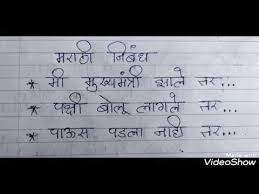 मराठी निबंध
* मी मुख्यमंत्री झाले तर...
* पक्षी बोलू लागले तर...
* पाऊस पडला नाही तर...
Made with
VideoShow